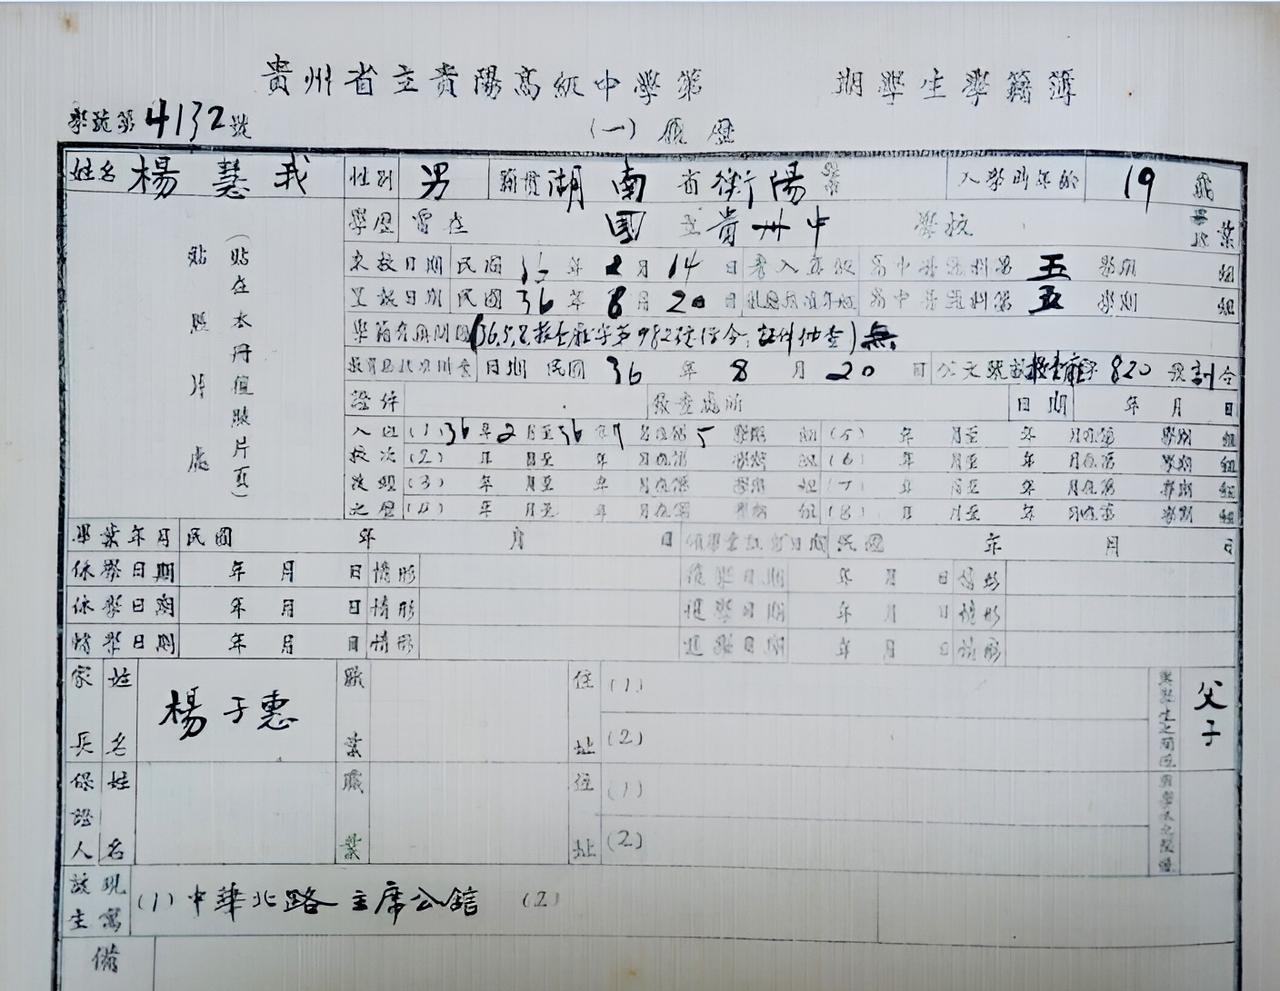 貴州省立貴陽高級中學第 期學生學籍簿
學號第4132號
(一) 履歷
姓名 楊慧我 性別 男 籍貫 湖南省衡陽 入學時年齡 19 歲
學歷 曾在 國立貴州中 學校 業
貼照片處
(貼在本冊值照片頁)
來校日期 民國 年2月14日 入年級 高中普通科第五學期 組
呈報日期 民國36年8月20日 高中普通科第五學期 組
(36.5.2. 字第982號指令, ) 無
日期 民國36年8月20日 公文號數 820號訓令
證件 發查處所 日期 年 月 日
(1) 36年2月至36年7月在第5學期 組 (5) 年 月至 年 月在第 學期 組
校次 (2) 年 月至 年 月在第 學期 組 (6) 年 月至 年 月在第 學期 組
(3) 年 月至 年 月在第 學期 組 (7) 年 月至 年 月在第 學期 組
之歷 (4) 年 月至 年 月在第 學期 組 (8) 年 月至 年 月在第 學期 組
畢業年月 民國 年 月 日 日期 民國 年 月 日
休學日期 年 月 日 情形 復學日期 年 月 日 情形
休學日期 年 月 日 情形 復學日期 年 月 日 情形
轉學日期 年 月 日 情形 退學日期 年 月 日 情形
家長 姓名 楊于惠 職業 住址 (1)
(2)
與學生之關係 父子
保證人 姓名 職業 住址 (1)
(2)
現寓 (1) 中華北路主席公館 (2)
備